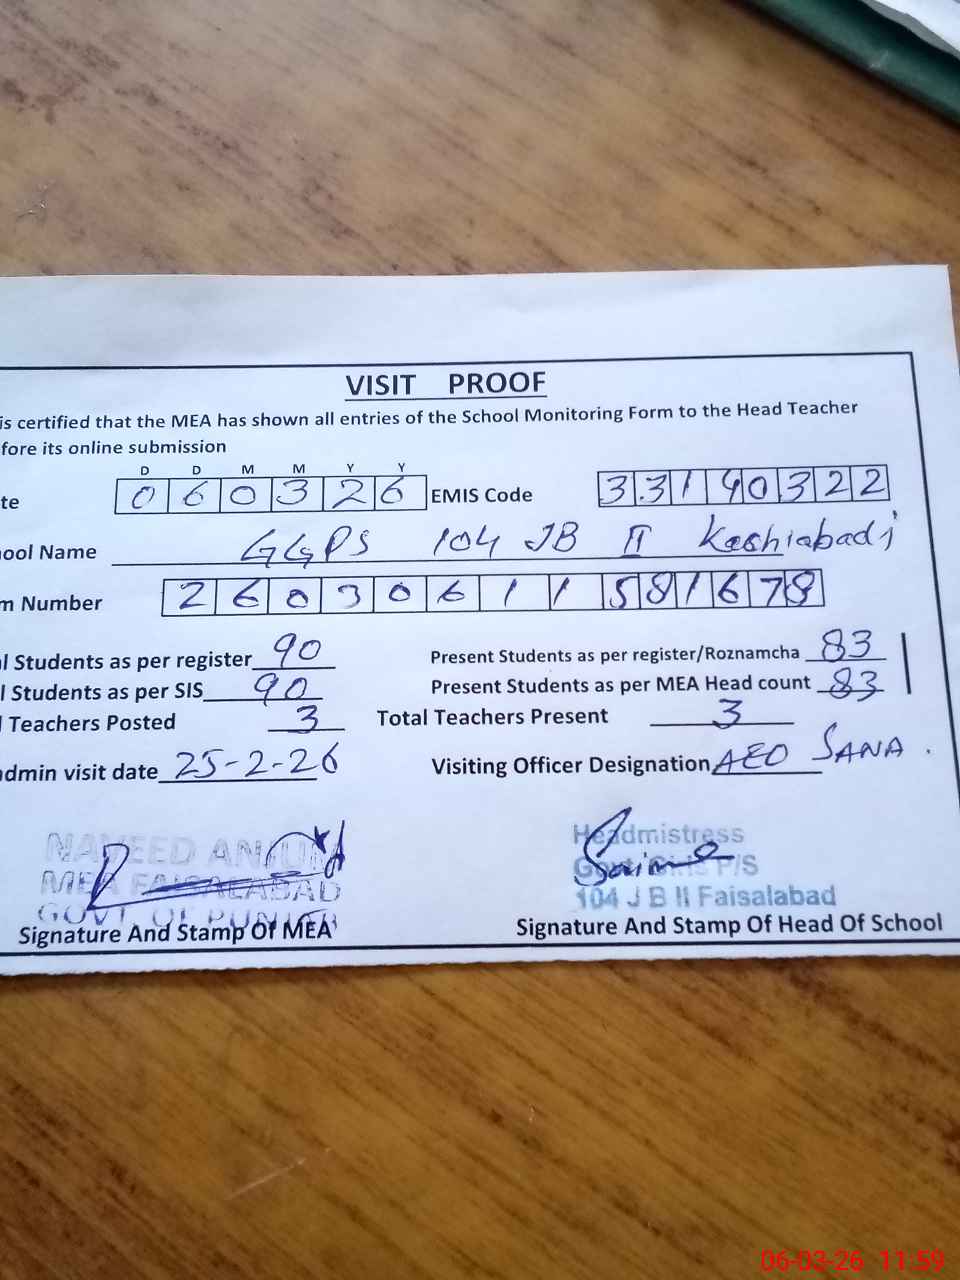 VISIT PROOF
is certified that the MEA has shown all entries of the School Monitoring Form to the Head Teacher
fore its online submission
D D M M Y Y
te 0 6 0 3 2 6 EMIS Code 3 3 1 4 0 3 2 2
ool Name GGPS 104 JB II Kashiabadi
m Number 2 6 0 3 0 6 1 1 5 8 1 6 7 8
l Students as per register 90 Present Students as per register/Roznamcha 83
l Students as per SIS 90 Present Students as per MEA Head count 83
l Teachers Posted 3 Total Teachers Present 3
dmin visit date 25-2-26 Visiting Officer Designation AEO SANA .
NAVEED ANJUM Headmistress
MEA FAISALABAD Govt. Girls P/S
GOVT. OF PUNJAB 104 J B II Faisalabad
Signature And Stamp Of MEA Signature And Stamp Of Head Of School
06-03-26 11:59